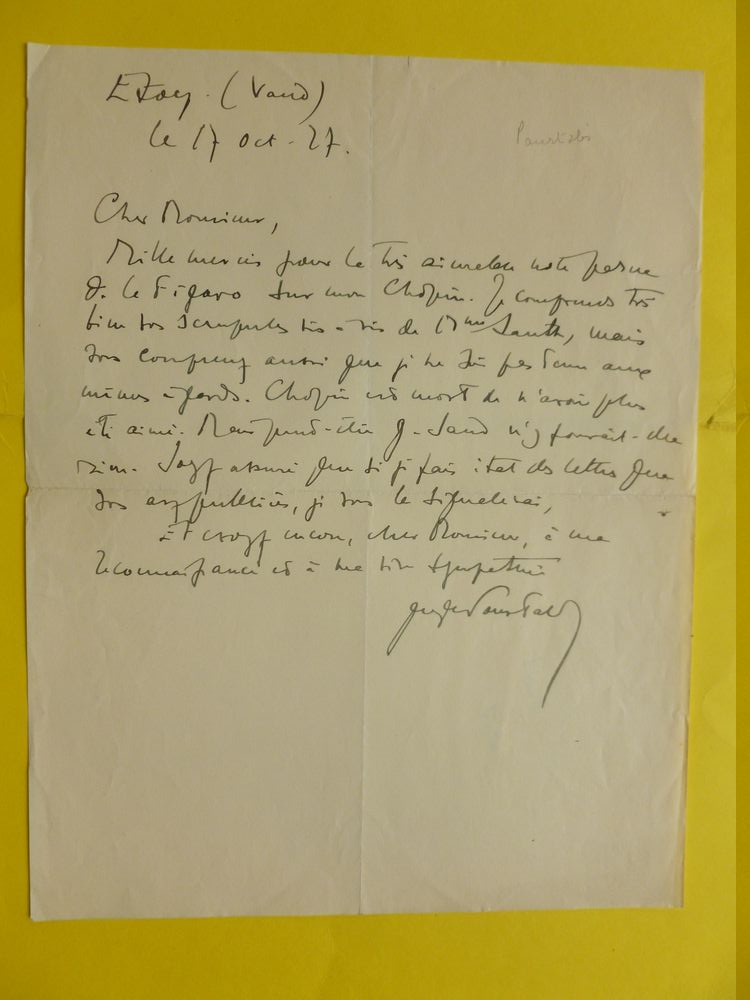 Etoy. (Vaud)
le 17 Oct. 27.
Pourtalès
Cher Monsieur,
Mille mercis pour la très aimable note parue
d. le Figaro sur mon Chopin. Je comprends très
bien vos scrupules vis-à-vis de Mme Lauth, mais
vous comprenez aussi que je ne suis pas tenu aux
mêmes égards. Chopin est mort de n'avoir plus
été aimé. Mais peut-être G. Sand n'y pouvait-elle
rien. Soyez assuré que si je fais état des lettres que
vous avez publiées, je vous le signalerai,
Et croyez encore, cher Monsieur, à ma
reconnaissance et à ma vive sympathie
Guy de Pourtalès